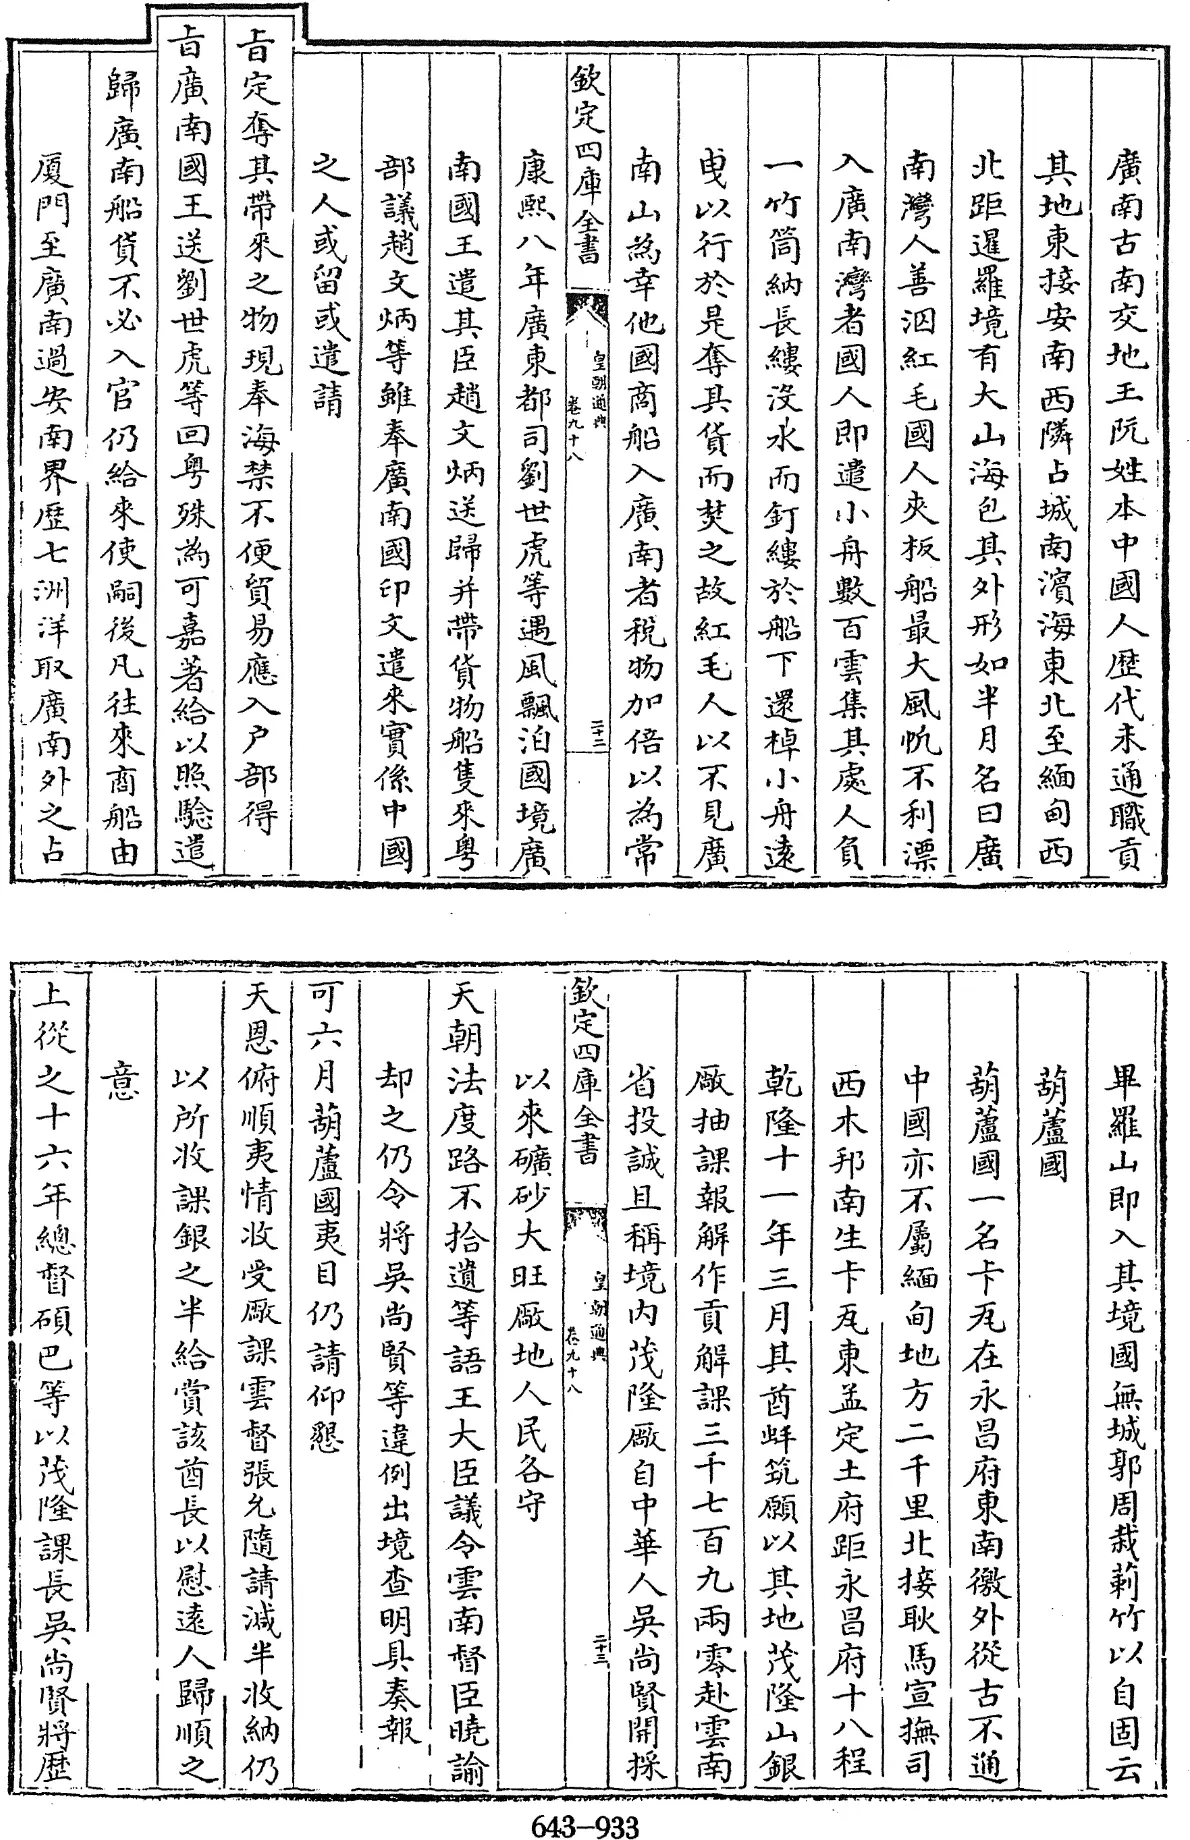 廣南古南交地王阮姓本中國人歴代未通職貢
其地東接安南西隣占城南濵海東北至緬甸西
北距暹羅境有大山海包其外形如半月名曰廣
南灣人善泅紅毛國人夾板船最大風帆不利漂
入廣南灣者國人即遣小舟數百雲集其處人負
一竹筒納長縷沒水而釘縷於船下還棹小舟遠
曳以行於是奪其貨而焚之故紅毛人以不見廣
南山為幸他國商船入廣南者稅物加倍以為常
欽定四庫全書
皇朝通典
卷九十八
二十二
康熙八年廣東都司劉世虎等遇風飄泊國境廣
南國王遣其臣趙文炳送歸并帶貨物船隻來粤
部議趙文炳等雖奉廣南國印文遣來實係中國
之人或留或遣請
㫖定奪其帶來之物現奉海禁不便貿易應入户部得
㫖廣南國王送劉世虎等回粤殊為可嘉著給以照驗遣
歸廣南船貨不必入官仍給來使嗣後凡往來商船由
厦門至廣南過安南界歴七洲洋取廣南外之占
畢羅山即入其境國無城郭周栽莿竹以自固云
葫蘆國
葫蘆國一名卡瓦在永昌府東南徼外從古不通
中國亦不屬緬甸地方二千里北接耿馬宣撫司
西木邦南生卡瓦東孟定土府距永昌府十八程
乾隆十一年三月其酋蚌筑願以其地茂隆山銀
廠抽課報解作貢解課三千七百九兩零赴雲南
省投誠且稱境内茂隆廠自中華人吳尚賢開採
欽定四庫全書
皇朝通典
卷九十八
二十三
以來礦砂大旺廠地人民各守
天朝法度路不拾遺等語王大臣議令雲南督臣曉諭
却之仍令將吳尚賢等違例出境查明具奏報
可六月葫蘆國夷目仍請仰懇
天恩俯順夷情收受廠課雲督張允隨請減半收納仍
以所收課銀之半給賞該酋長以慰遠人歸順之
意
上從之十六年總督碩巴等以茂隆課長吳尚賢將歴
643-933